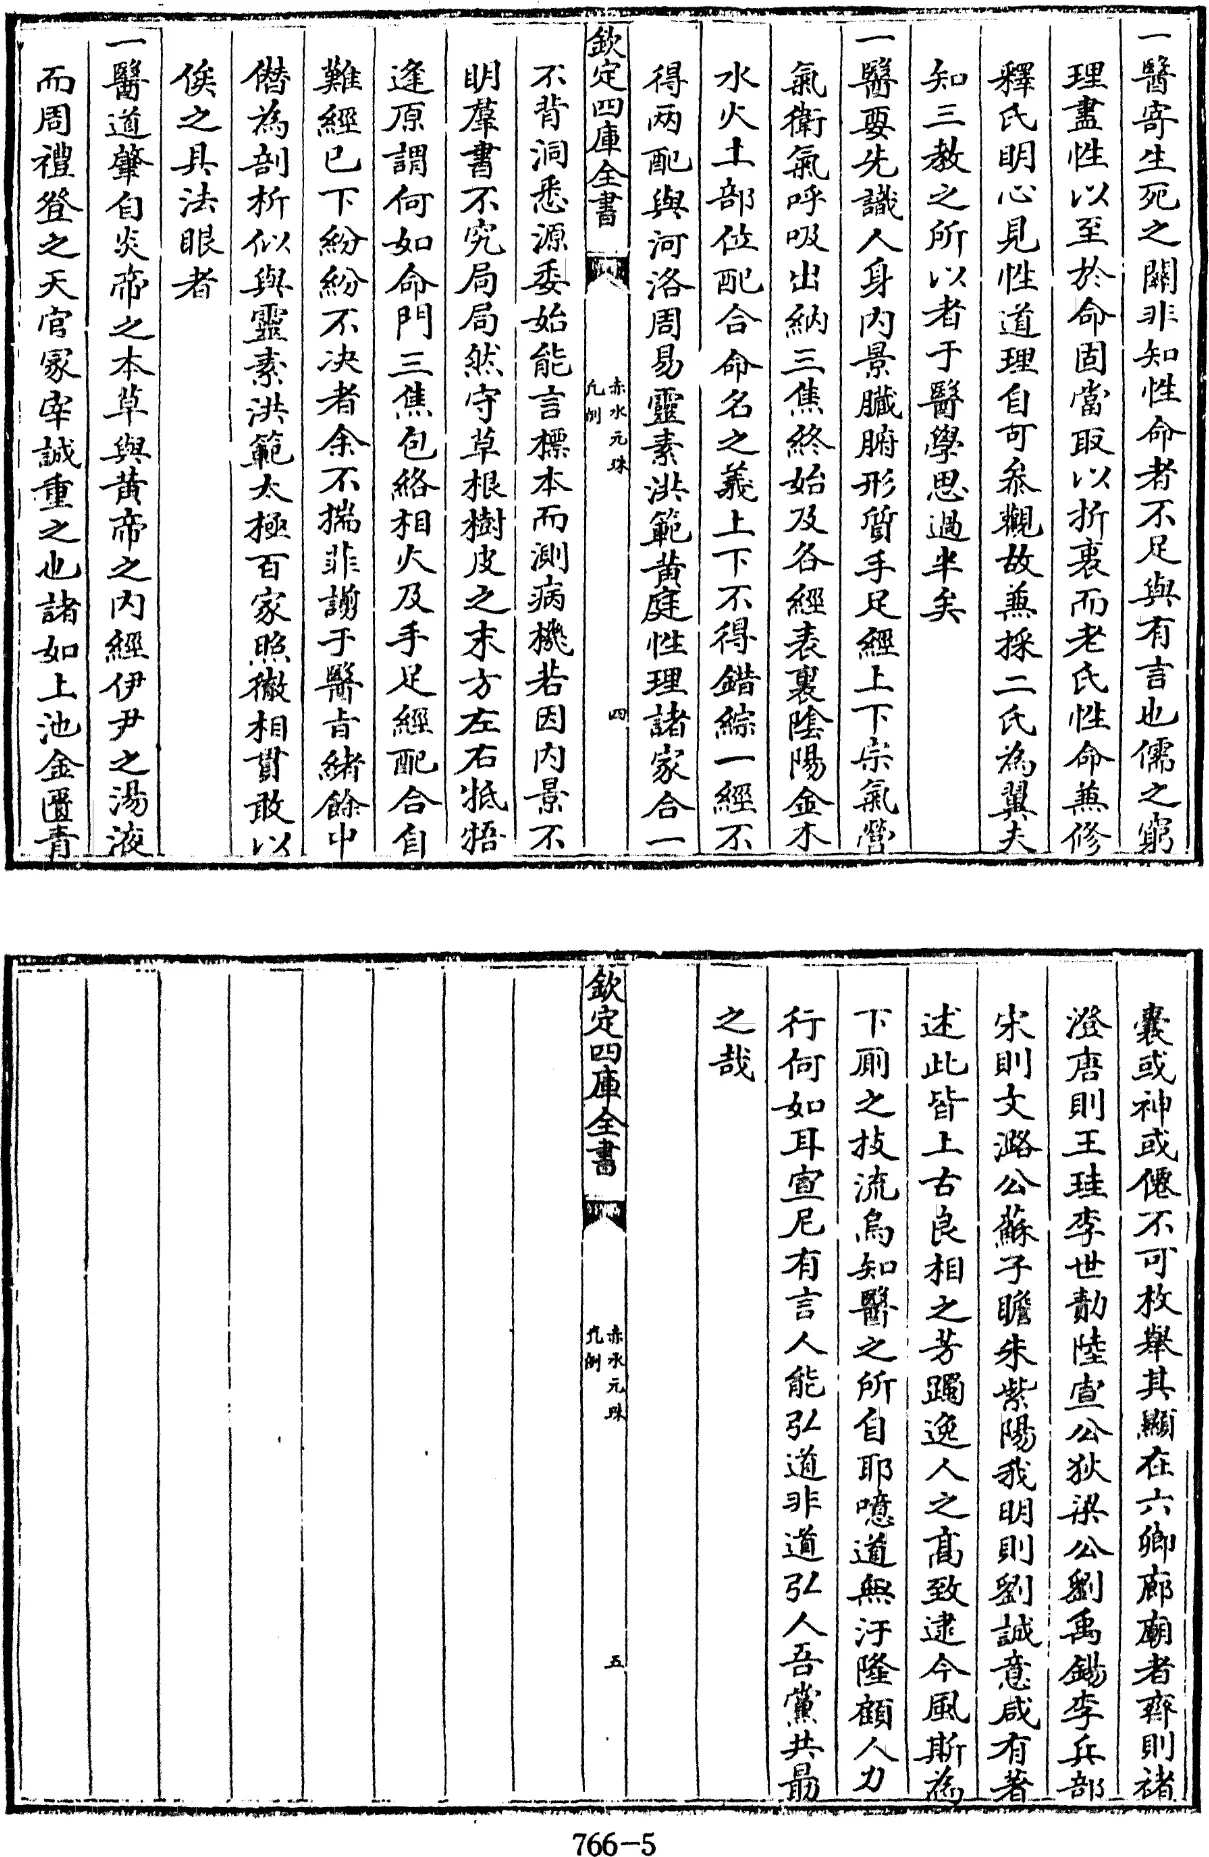 一醫寄生死之關非知性命者不足與有言也儒之窮
理盡性以至於命固當取以折衷而老氏性命兼修
釋氏明心見性道理自可叅觀故兼採二氏為翼夫
知三教之所以者于醫學思過半矣
一醫要先識人身内景臟腑形質手足經上下宗氣營
氣衛氣呼吸出納三焦終始及各經表裏陰陽金木
水火土部位配合命名之義上下不得錯綜一經不
得兩配與河洛周易靈素洪範黄庭性理諸家合一
欽定四庫全書
赤水元珠
凡例
四
不背洞悉源委始能言標本而測病機若因内景不
明羣書不究局局然守草根樹皮之末方左右牴牾
逢原謂何如命門三焦包絡相火及手足經配合自
難經已下紛紛不决者余不揣非謭于醫旨緒餘中
僭為剖析似與靈素洪範太極百家照徹相貫敢以
俟之具法眼者
一醫道肇自炎帝之本草與黄帝之内經伊尹之湯液
而周禮登之天官冢宰誠重之也諸如上池金匱青
囊或神或僊不可枚舉其顯在六卿廊廟者齊則褚
澄唐則王珪李世勣陸宣公狄梁公劉禹錫李兵部
宋則文潞公蘇子瞻朱紫陽我明則劉誠意咸有著
述此皆上古良相之芳躅逸人之髙致逮今風斯為
下厠之技流烏知醫之所自耶噫道無汙隆顧人力
行何如耳宣尼有言人能弘道非道弘人吾黨共勗
之哉
欽定四庫全書
赤水元珠
凡例
五
766-5